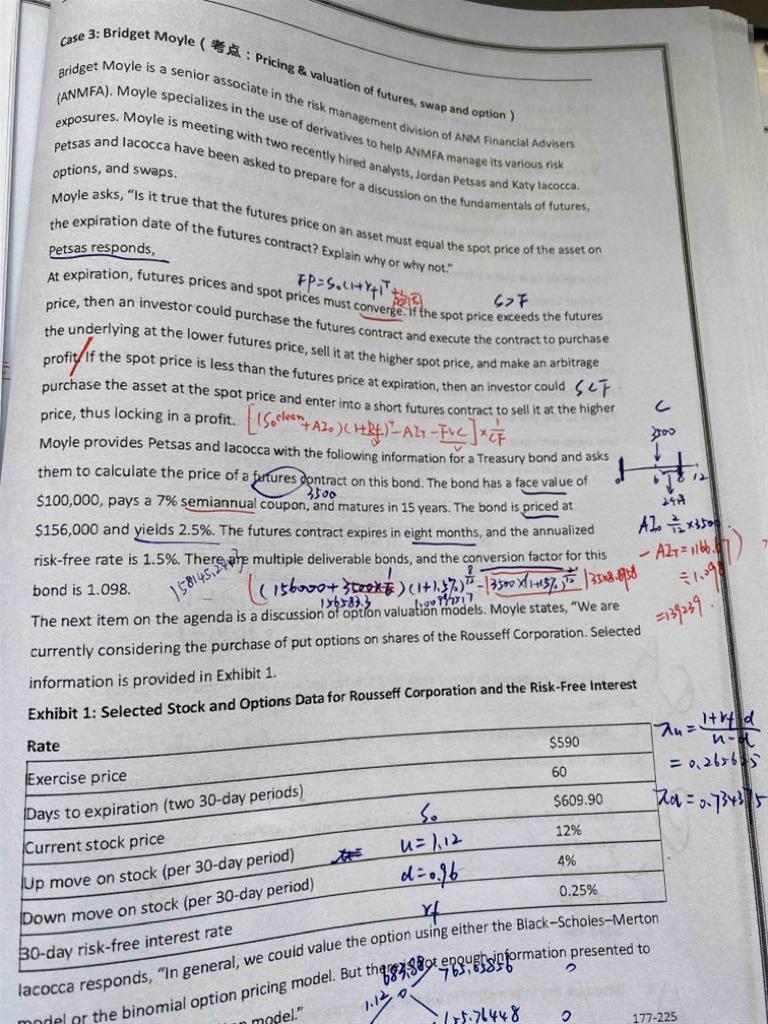 Case 3: Bridget Moyle ( 考点 : Pricing & valuation of futures, swap and option )
Bridget Moyle is a senior associate in the risk management division of ANM Financial Advisers
(ANMFA). Moyle specializes in the use of derivatives to help ANMFA manage its various risk
exposures. Moyle is meeting with two recently hired analysts, Jordan Petsas and Katy Iacocca.
Petsas and Iacocca have been asked to prepare for a discussion on the fundamentals of futures,
options, and swaps.
Moyle asks, "Is it true that the futures price on an asset must equal the spot price of the asset on
the expiration date of the futures contract? Explain why or why not."
Petsas responds,
FP=S₀(1+rf)ᵀ
S>F
At expiration, futures prices and spot prices must converge. If the spot price exceeds the futures
price, then an investor could purchase the futures contract and execute the contract to purchase
the underlying at the lower futures price, sell it at the higher spot price, and make an arbitrage
profit. If the spot price is less than the futures price at expiration, then an investor could
S<F
purchase the asset at the spot price and enter into a short futures contract to sell it at the higher
price, thus locking in a profit.
[(S₀clean + AI₀)(1+Rf)ᵀ - AIT - FVC] × 1/CF
C
3500
Moyle provides Petsas and Iacocca with the following information for a Treasury bond and asks
them to calculate the price of a futures contract on this bond. The bond has a face value of
0 6 8 12
3500
$100,000, pays a 7% semiannual coupon, and matures in 15 years. The bond is priced at
$156,000 and yields 2.5%. The futures contract expires in eight months, and the annualized
risk-free rate is 1.5%. There are multiple deliverable bonds, and the conversion factor for this
- AIT = 1166.67)
bond is 1.098.
÷ 1.098
=139239.
156583.3
The next item on the agenda is a discussion of option valuation models. Moyle states, "We are
currently considering the purchase of put options on shares of the Rousseff Corporation. Selected
information is provided in Exhibit 1.
Exhibit 1: Selected Stock and Options Data for Rousseff Corporation and the Risk-Free Interest
Rate
λu = 1+rf-d / u-d
= 0.265625
λd = 0.734375
Exercise price $590
Days to expiration (two 30-day periods) 60
Current stock price S₀ $609.90
Up move on stock (per 30-day period) u=1.12 12%
Down move on stock (per 30-day period) d=0.96 4%
30-day risk-free interest rate rf 0.25%
Iacocca responds, "In general, we could value the option using either the Black–Scholes–Merton
model or the binomial option pricing model. But there is not enough information presented to
model."
1.12
0
177-225